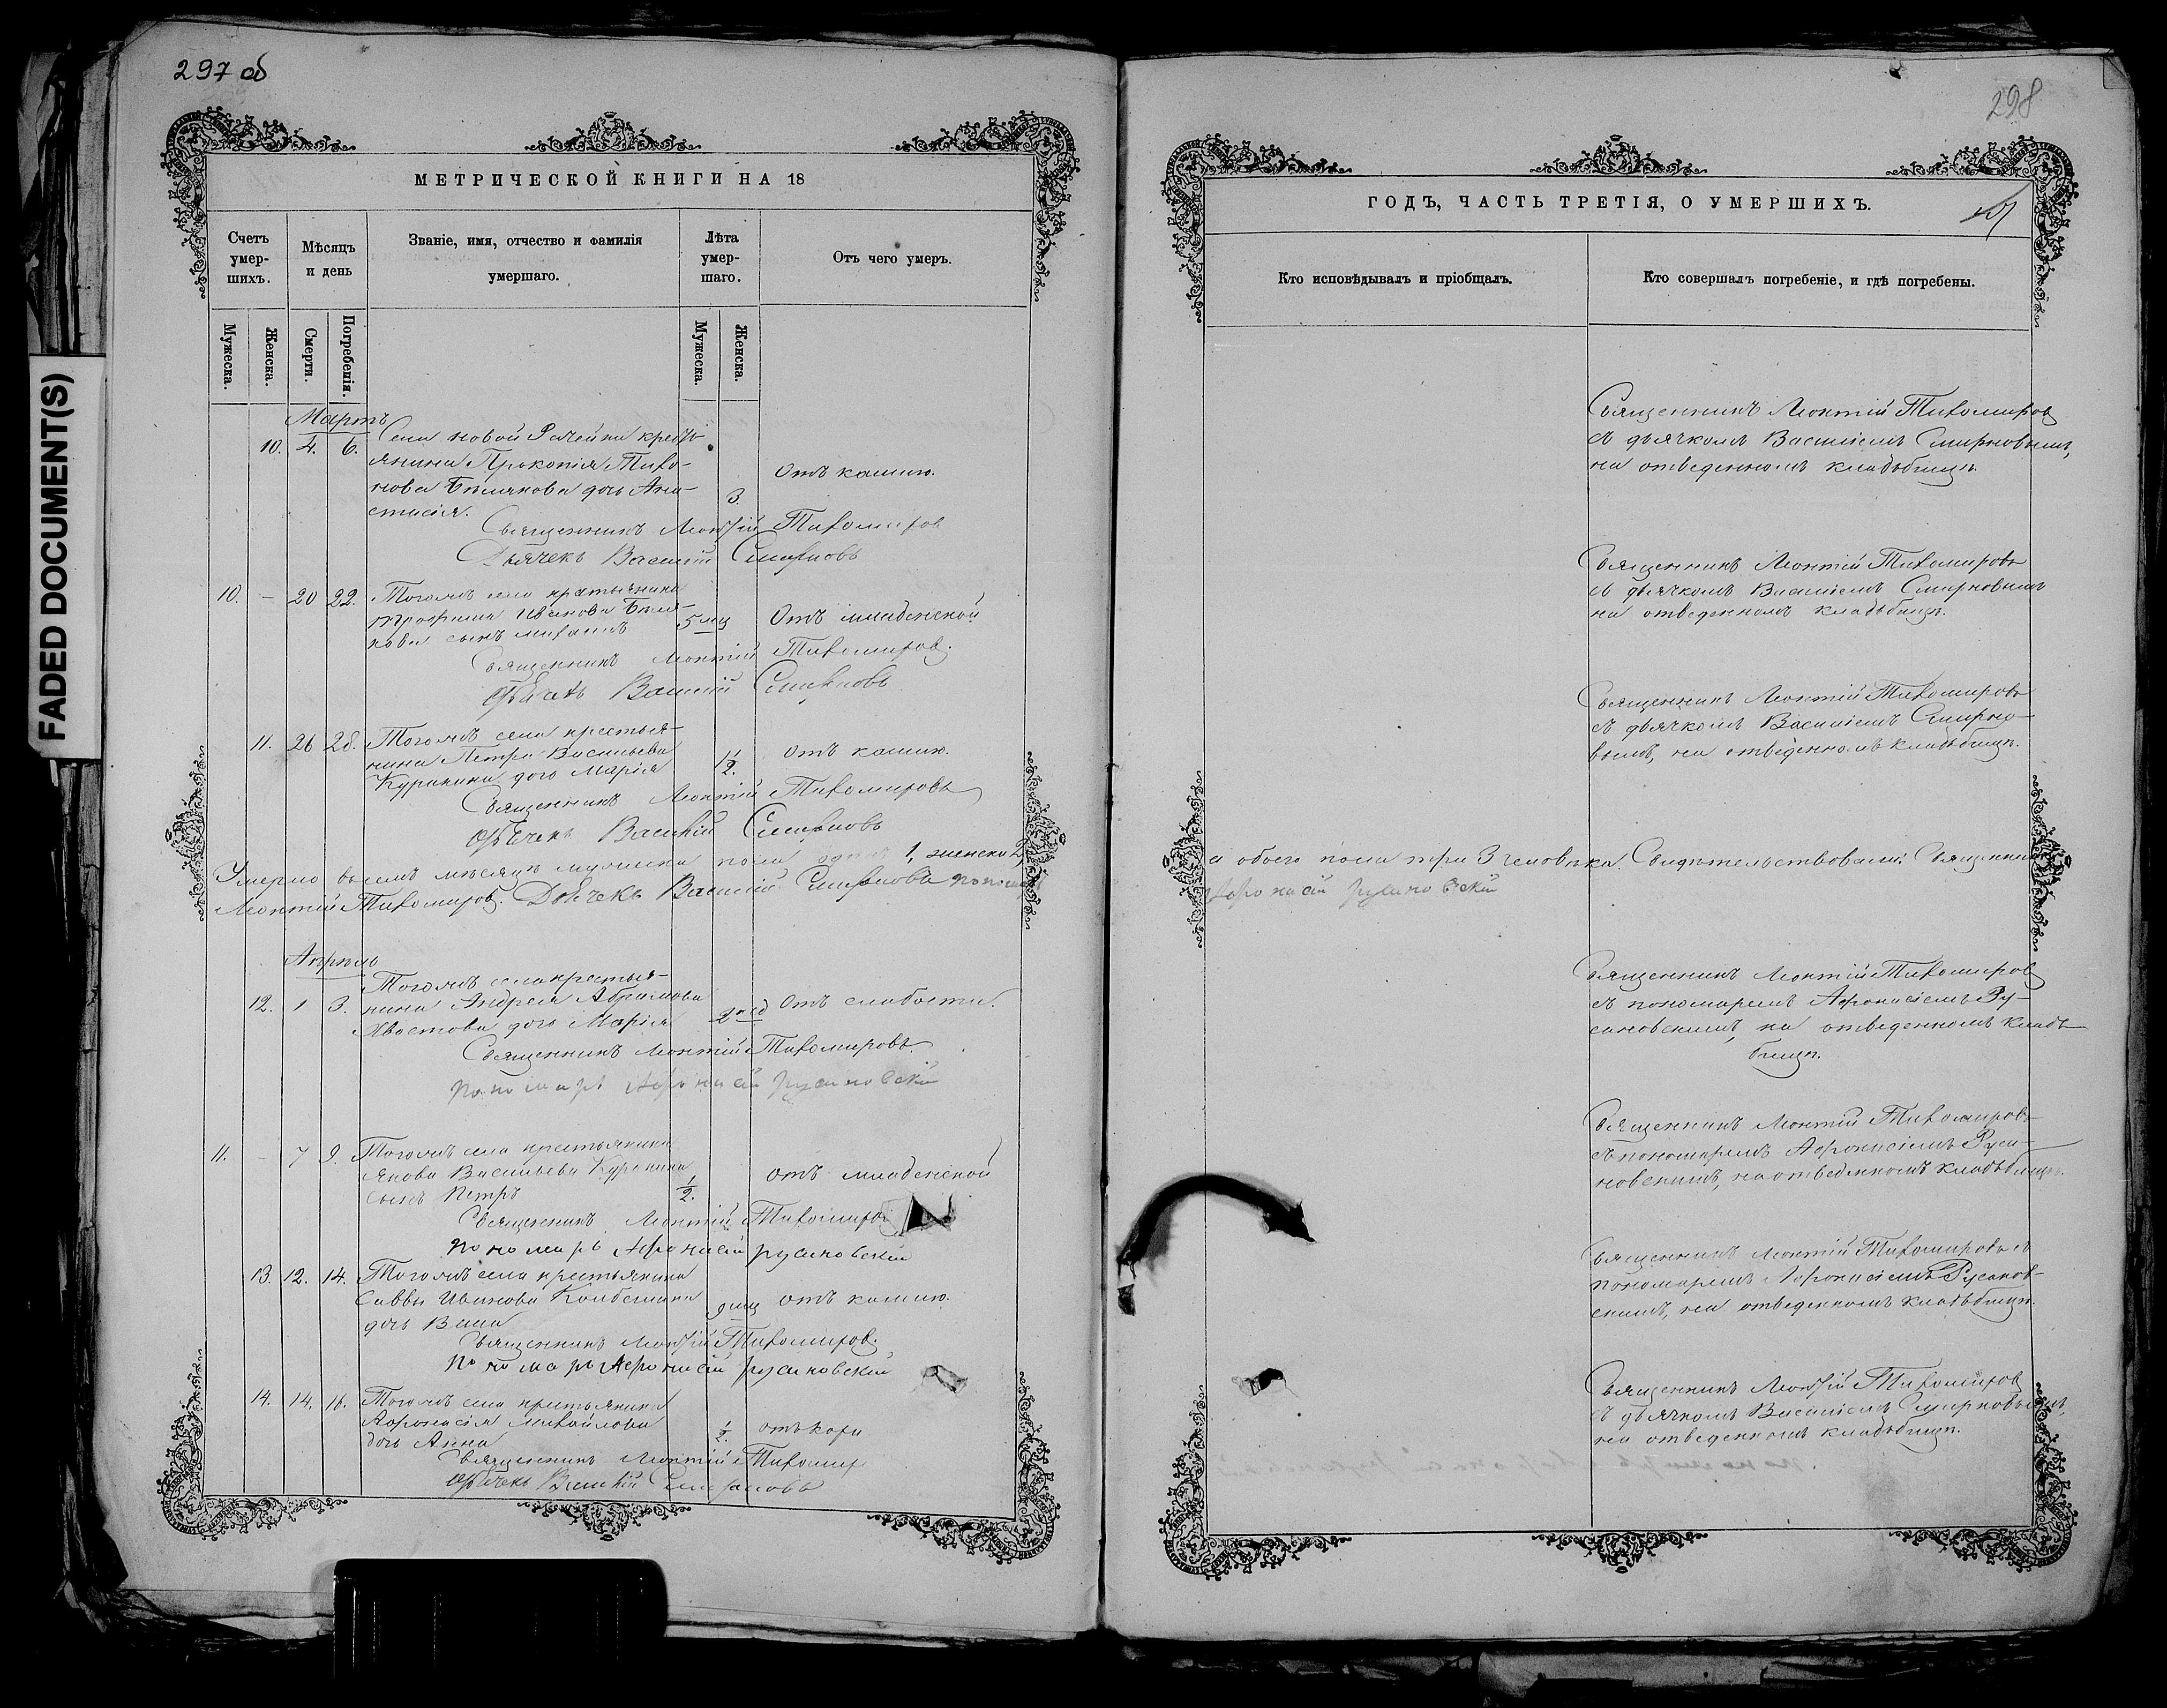 297 об
МЕТРИЧЕСКОЙ КНИГИ НА 18
Счетъ умер-шихъ.
Мѣсяцъ и день
Званіе, имя, отчество и фамилія умершаго.
Лѣта умер-шаго.
Отъ чего умеръ.
Мужеска.
Женска.
Смерти.
Погребенія.
Мужеска.
Женска.
Мартъ
10. 4. 6. Села новой Рачейки кресть-
янина Прокопія Тихо-
нова Бѣлякова дочь Ана-
стасія. 3. Отъ кашлю.
Священникъ Леонтій Тихомировъ
Дьячекъ Василій Смирновъ
10. — 20 22. Тогожъ села крестьянина
Трофима Иванова Бѣля-
кова сынъ Михаилъ 5 мц Отъ младенской
Священникъ Леонтій Тихомировъ.
Дьячекъ Василій Смирновъ
11. 26 28. Тогожъ села крестья-
нина Петра Васильева
Куракина дочь Марія 1/2. отъ кашлю.
Священникъ Леонтій Тихомировъ
Дьячекъ Василій Смирновъ
Умерло в семъ мѣсяцѣ мужеска пола одинъ 1, женска 2,
Леонтій Тихомировъ. Дьячекъ Василій Смирновъ пономарь
Апрѣль
12. 1 3. Тогожъ села крестья-
нина Андрея Абрамова
Хвостова дочь Марія 2 нед Отъ слабости.
Священникъ Леонтій Тихомировъ.
пономарь Афонасій русановскій
11. — 7 9. Тогожъ села крестьянина
Якова Васильева Куракина
сынъ Петръ 1/2. отъ младенской
Священникъ Леонтій Тихомировъ
пономарь Афонасій русановскій
13. 12. 14. Тогожъ села крестьянина
Саввы Иванова
дочь 9 мц отъ кашлю.
Священникъ Леонтій Тихомировъ.
пономарь Афонасій русановскій
14. 14. 16. Тогожъ села крестьянина
Афонасія Михайлова
дочь Анна 1/2. отъ кори
Священникъ Леонтій Тихомир
Дьячекъ Василій Смирновъ
298
ГОДЪ, ЧАСТЬ ТРЕТІЯ, О УМЕРШИХЪ.
Кто исповѣдывалъ и пріобщалъ.
Кто совершалъ погребеніе, и гдѣ погребены.
Священникъ Леонтій Тихомировъ
съ дьячкомъ Василіемъ Смирновымъ,
на отведенномъ кладьбищѣ.
Священникъ Леонтій Тихомировъ
съ дьячкомъ Василіемъ Смирновымъ
на отведенномъ кладьбищѣ.
Священникъ Леонтій Тихомировъ
съ дьячкомъ Василіемъ Смирно-
вымъ, на отведенномъ кладьбищѣ.
а обоего пола три 3 человѣка. Свидѣтельствовали: Священникъ
Афонасій русановскій
Священникъ Леонтій Тихомировъ
съ пономаремъ Афонасіемъ Ру-
сановскимъ, на отведенномъ кладь-
бищѣ.
Священникъ Леонтій Тихомировъ
съ пономаремъ Афонасіемъ Руса-
новскимъ, на отведенномъ кладьбищѣ.
Священникъ Леонтій Тихомировъ съ
пономаремъ Афонасіемъ Русанов-
скимъ, на отведенномъ кладьбищѣ.
Священникъ Леонтій Тихомировъ
съ дьячкомъ Василіемъ Смирновымъ,
на отведенномъ кладьбищѣ.
FADED DOCUMENT(S)